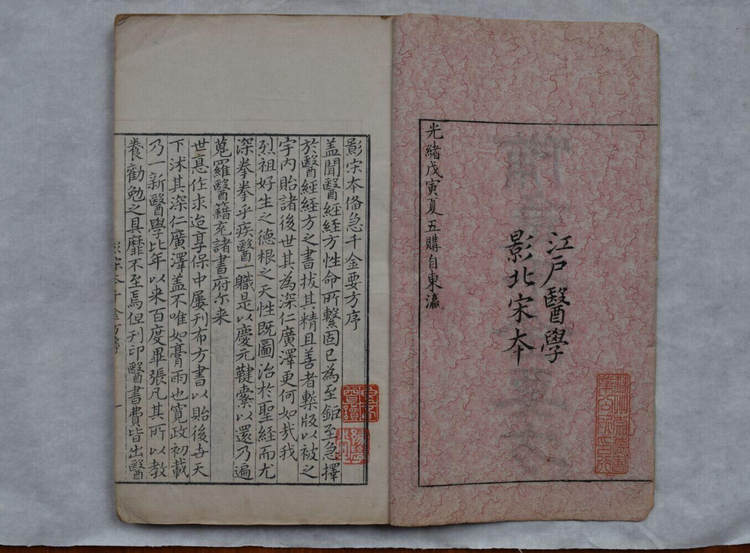 江戶醫學
影北宋本
光緒戊寅夏五購自東瀛
影宋本俻急千金要方序
蓋聞醫經經方性命所繫固已為至鉅至急擇
於醫經經方之書拔其精且善者槧版以被之
宇内貽諸後世其為深仁廣澤更何如哉我
烈祖好生之德根之天性既圖治於聖經而尤
深拳拳乎疾醫職是以慶元鞬櫜以還乃遍
蒐羅醫籍充諸書府尔來
世悳作求迨享保中屢刋布方書以貽後天
下沐其深仁廣澤蓋不唯如膏雨也寬政初載
乃一新醫學比年以来百度畢張凡其所以教
養勸勉之具靡不至焉但刊印醫書費皆出醫
影宋本千金方序
一